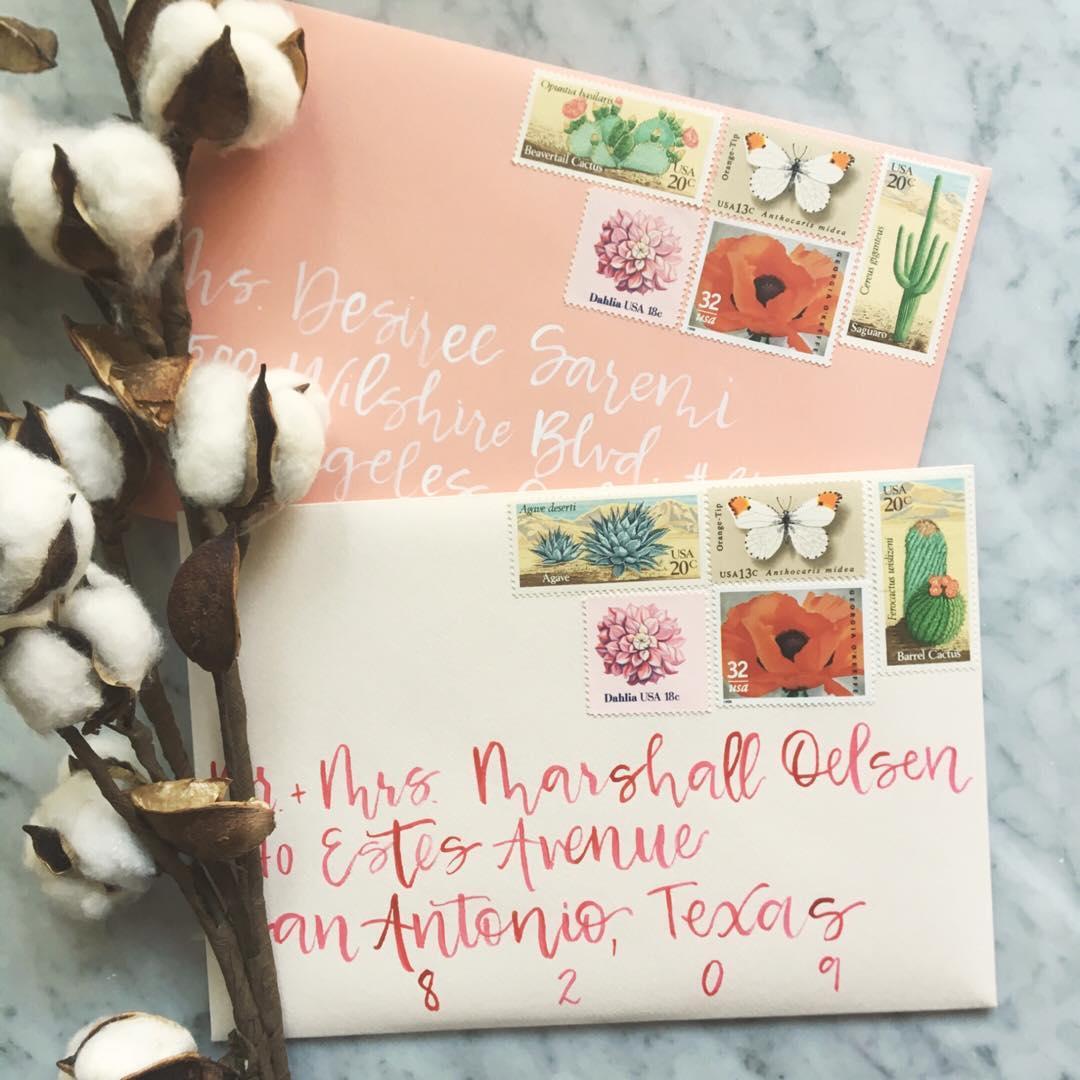 Opuntia basilaris
Beavertail Cactus
USA
20c
Orange-Tip
USA 13c Anthocaris midea
USA
20c
Cereus giganteus
Saguaro
Dahlia USA 18c
32
usa
GEORGIA O'KEEFFE
Desiree Saremi
Wilshire Blvd.
Agave deserti
Agave
USA
20c
Orange-Tip
USA 13c Anthocaris midea
USA
20c
Ferocactus wislizeni
Barrel Cactus
Dahlia USA 18c
32
usa
GEORGIA O'KEEFFE
+ Mrs. Marshall Oelsen
Estes Avenue
Antonio, Texas
8 2 0 9